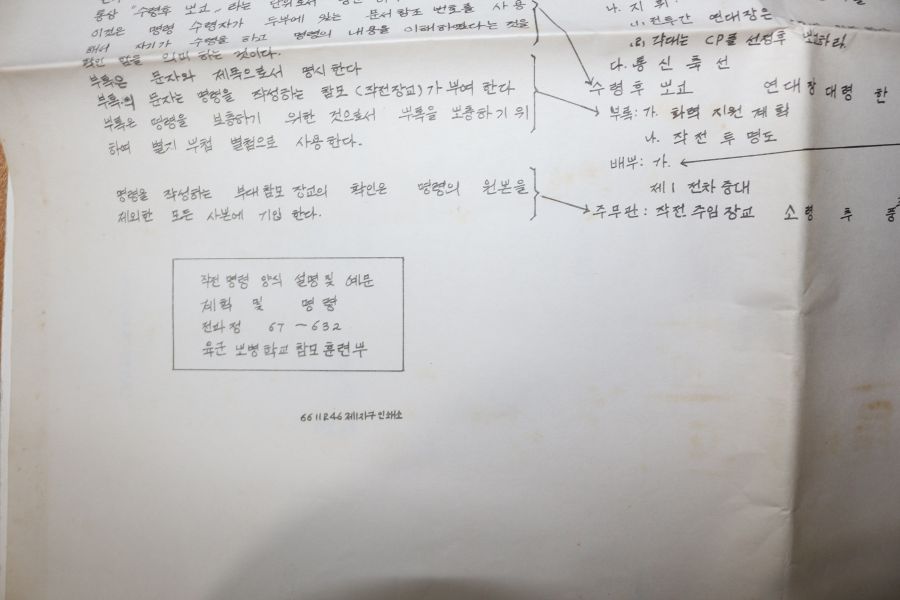 통상 "수령후 보고" 라는
이것은 명령 수령자가 두부에 있는 문서참조 번호를 사용
해서 자기가 수령을 하고 명령의 내용을 이해하였다는 것을
확인 함을 의미 하는 것이다.
부록은 문자와 제목으로서 명시한다
부록의 문자는 명령을 작성하는 참모 (작전장교)가 부여 한다
부록은 명령을 보충하기 위한 것으로서 부록을 보충하기 위
하여 별지 부첩 별첨으로 사용한다.
명령을 작성하는 부대 참모 장교의 확인은 명령의 원본을
제외한 모든 사본에 기입 한다.
작전 명령 양식 설명 및 예문
계획 및 명령
전파정 67-632
육군 보병 학교 참모 훈련부
66 11 R46 제1지구 인쇄소
나. 지휘:
(1). 전투간 연대장은
(2) 각대는 CP를 선정후 보고하라.
다. 통신 축선
수령후 보고 연대장 대령 한
부록: 가. 화력 지원 계획
나. 작전 투명도
배부: 가.
제1 전차 중대
주무관: 작전 주임 장교 소령 추 풍